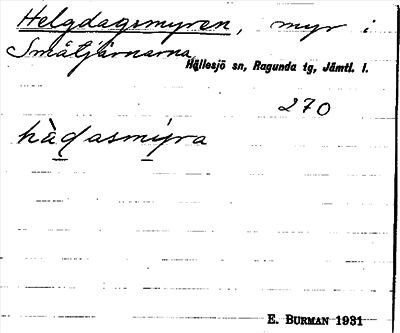 Helgdagsmyren, myr i
Småtjärnarna
Hällesjö sn, Ragunda tg, Jämtl. l.
270
hàdasmýra
E. BURMAN 1931